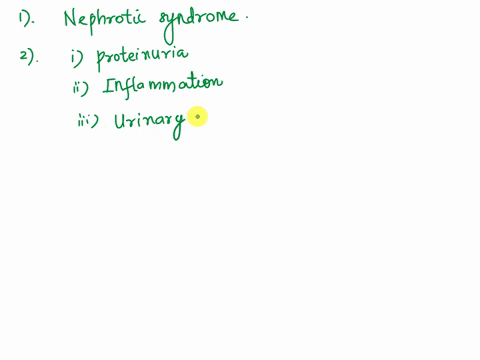 1). Nephrotic syndrome.
2). i) Proteinuria
ii) Inflammation
iii) Urinary